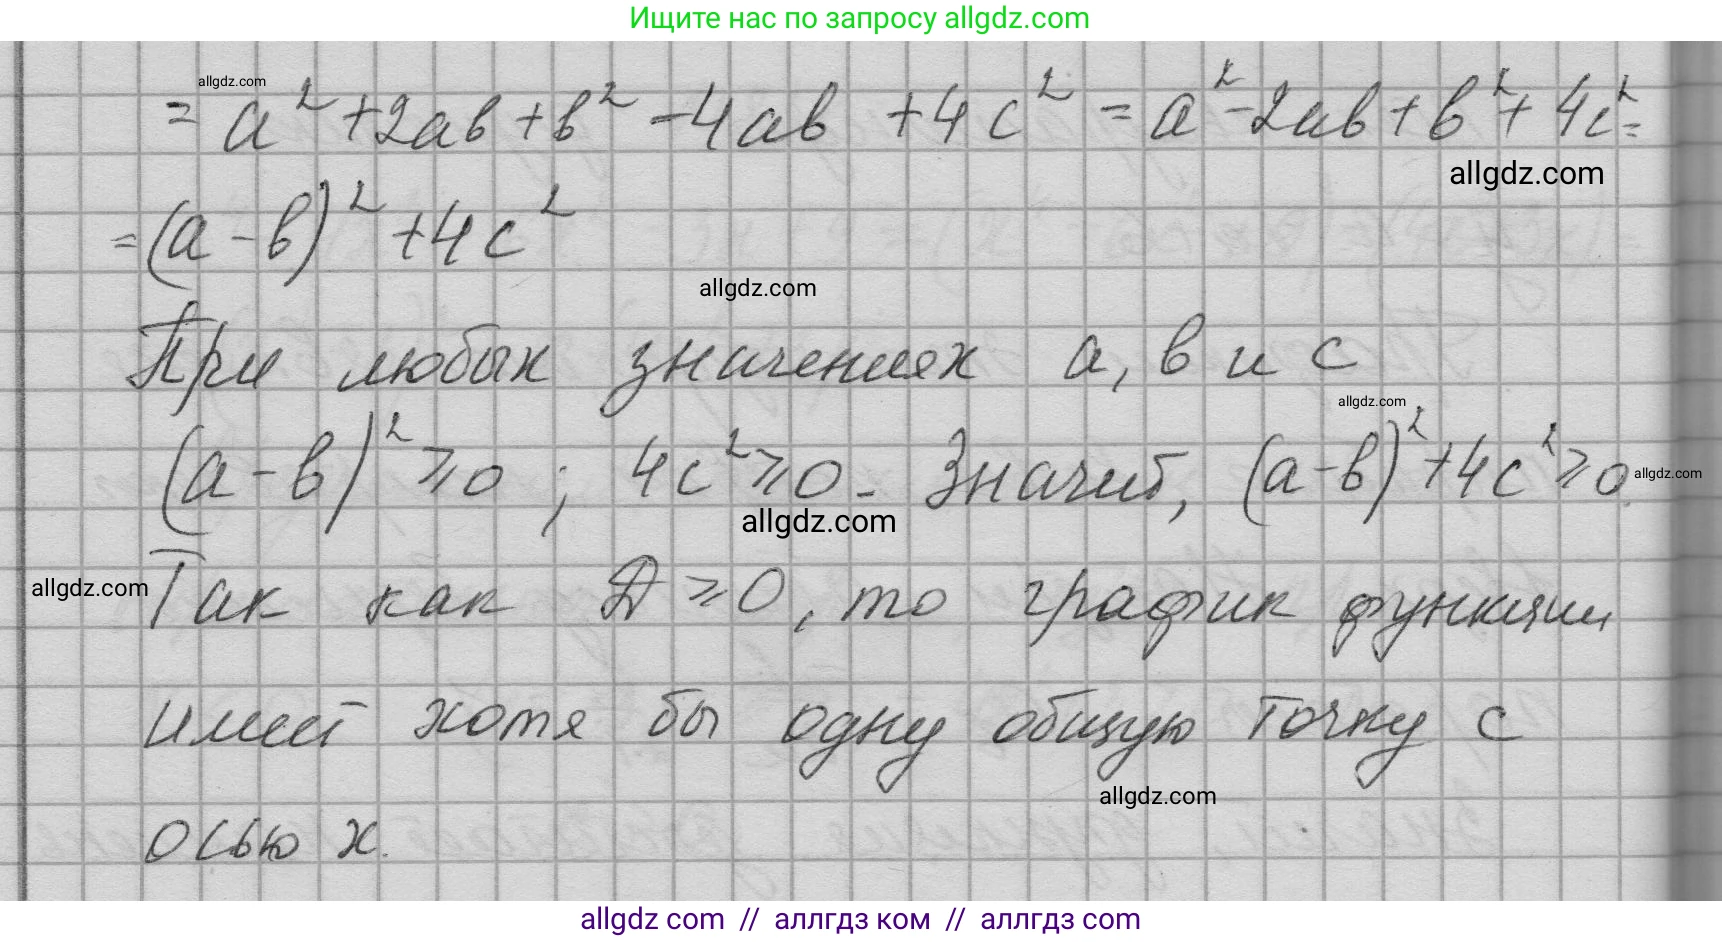 Ищите нас по запросу allgdz.com
allgdz.com
= a² + 2ab + b² - 4ab + 4c² = a² - 2ab + b² + 4c² =
allgdz.com
= (a - b)² + 4c²
allgdz.com
При любых значениях a, b и c
allgdz.com
(a - b)² ⩾ 0 ; 4c² ⩾ 0. Значит, (a - b)² + 4c² ⩾ 0.
allgdz.com
allgdz.com
allgdz.com
Так как D ⩾ 0, то график функции
имеет хотя бы одну общую точку с
allgdz.com
осью x.
allgdz com // аллгдз ком // аллгдз.com